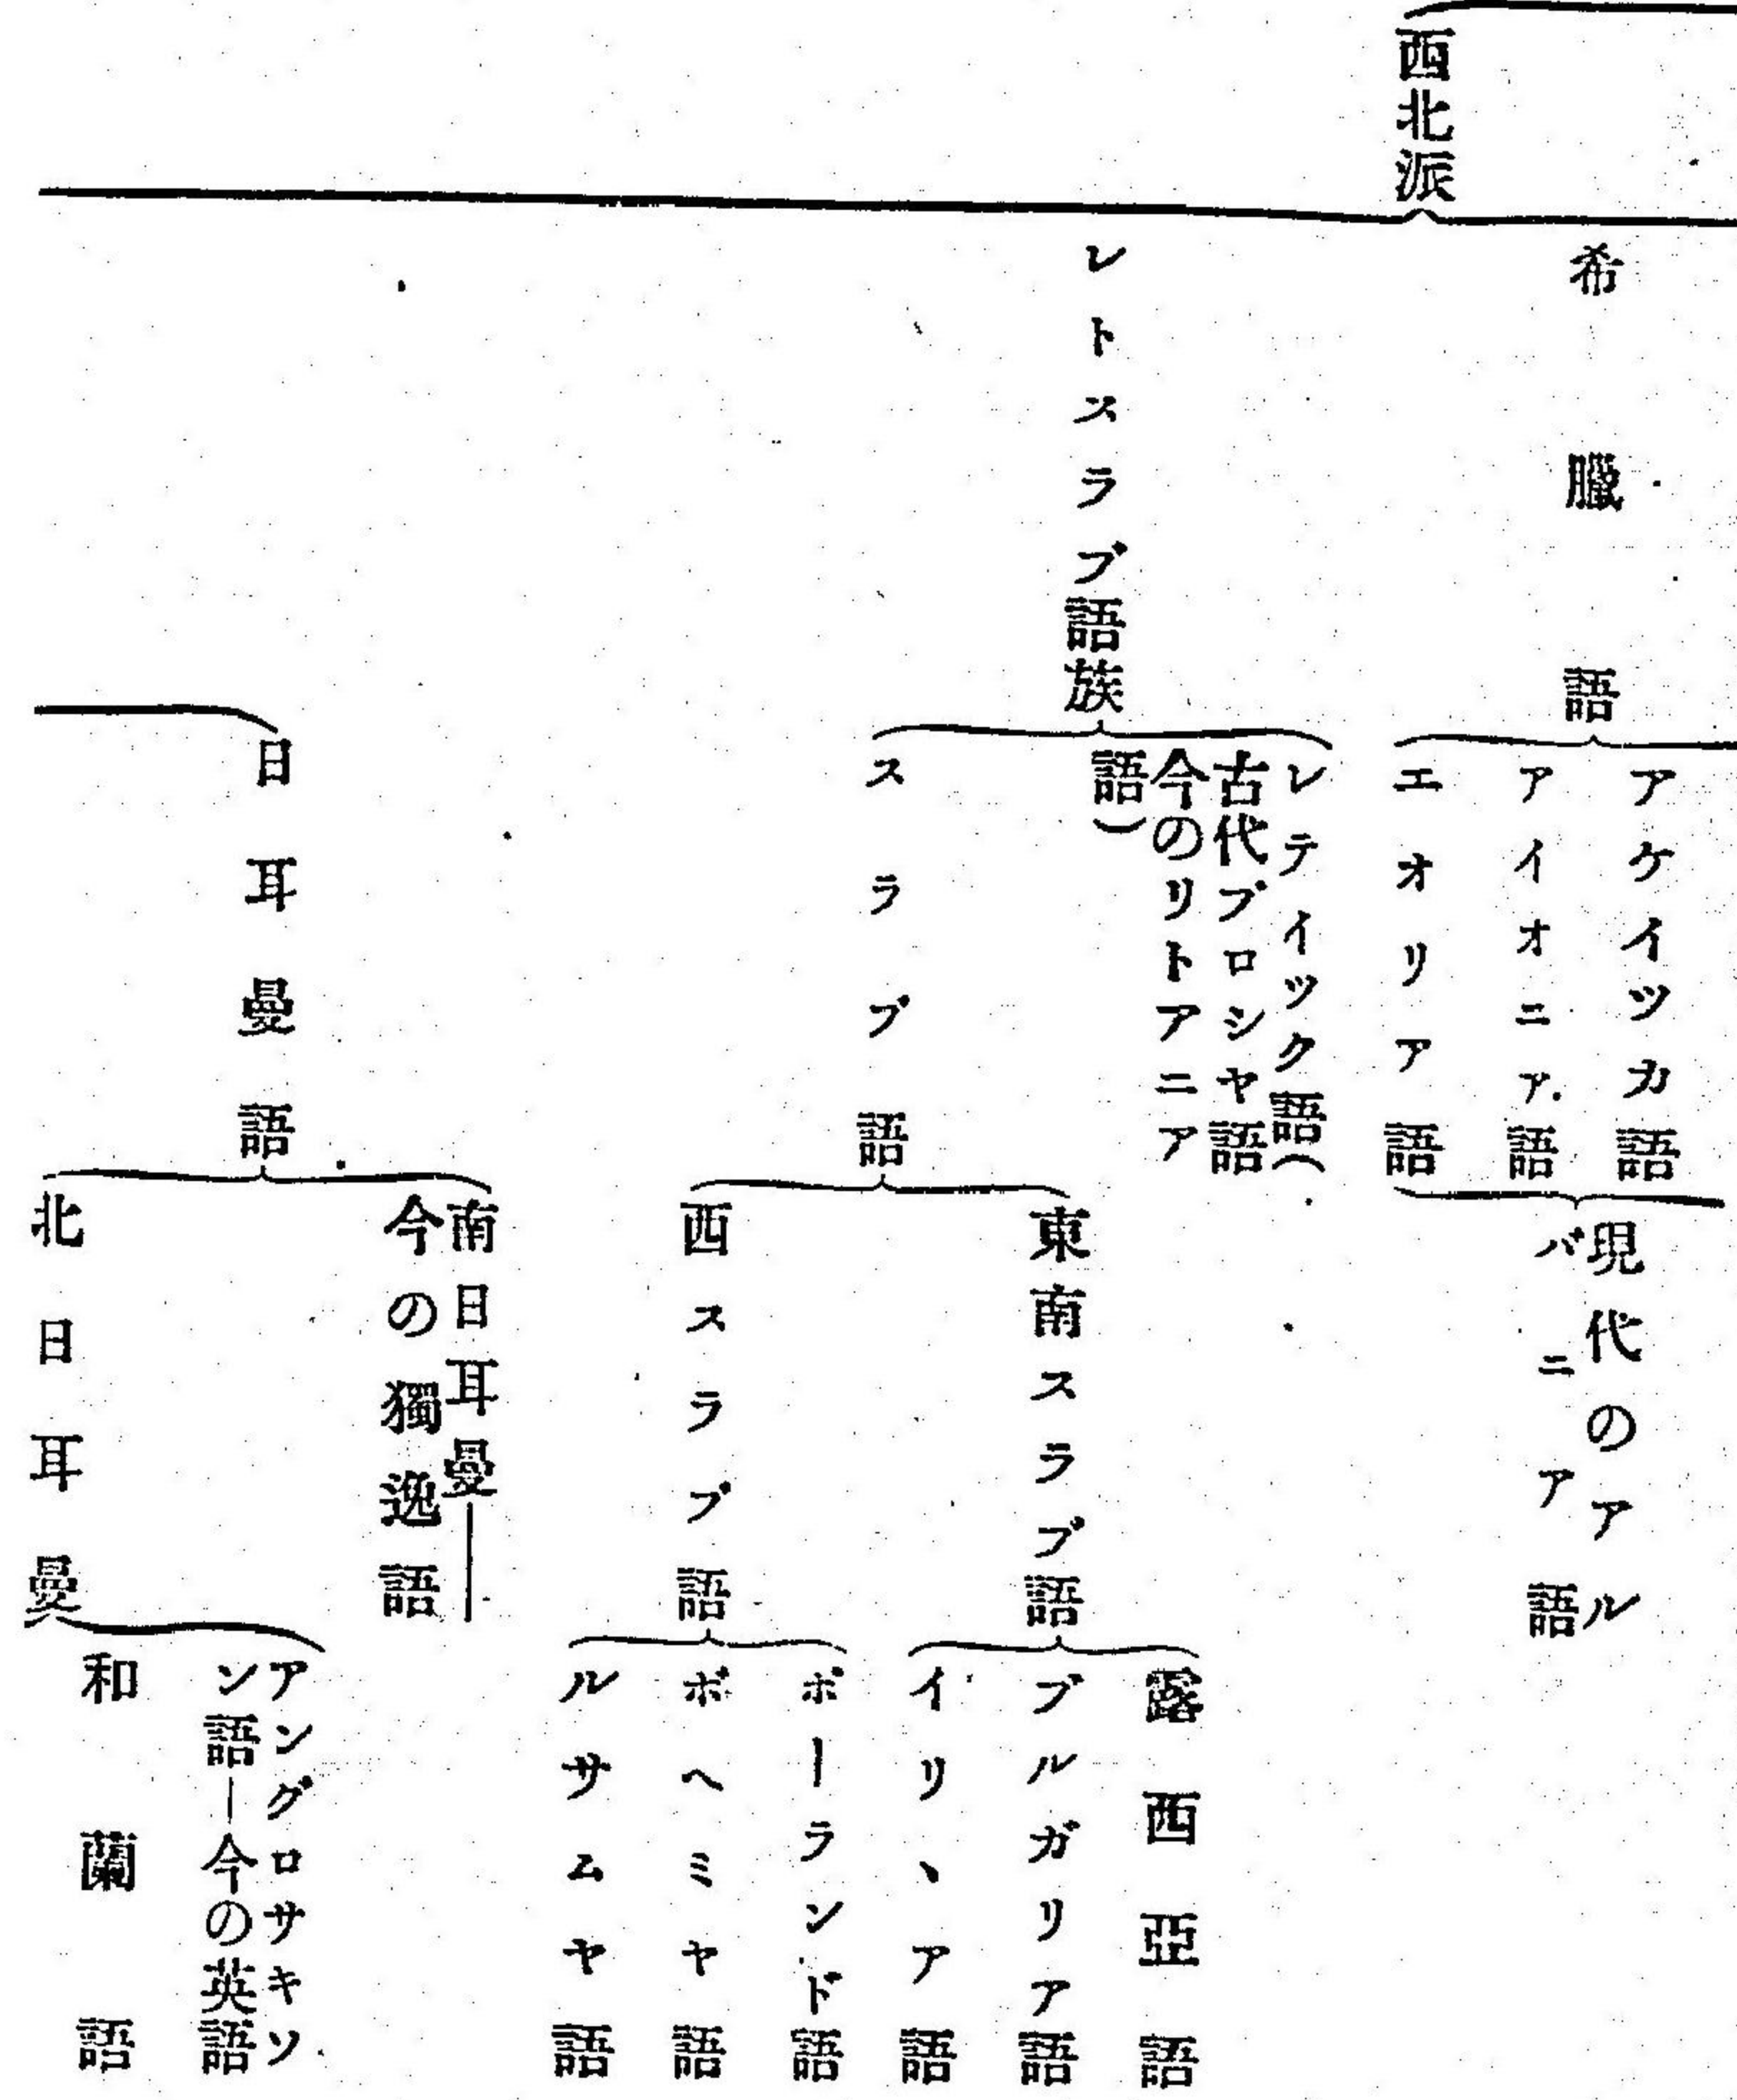 西北派
希臘語
アケイツカ語
アイオニア語
エオリア語
現代のアル
バニア語
レトスラブ語族
レテイツク語(
古代プロシヤ語
今のリトアニア
語)
スラブ語
東南スラブ語
露西亞語
ブルガリア語
イリヽア語
西スラブ語
ポーランド語
ボヘミヤ語
ルサムヤ語
日耳曼語
南日耳曼――
今の獨逸語
北日耳曼
アングロサキソ
ン語―今の英語
和蘭語